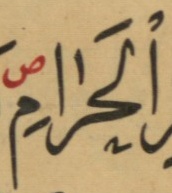 الْحَرَامِ ۖص